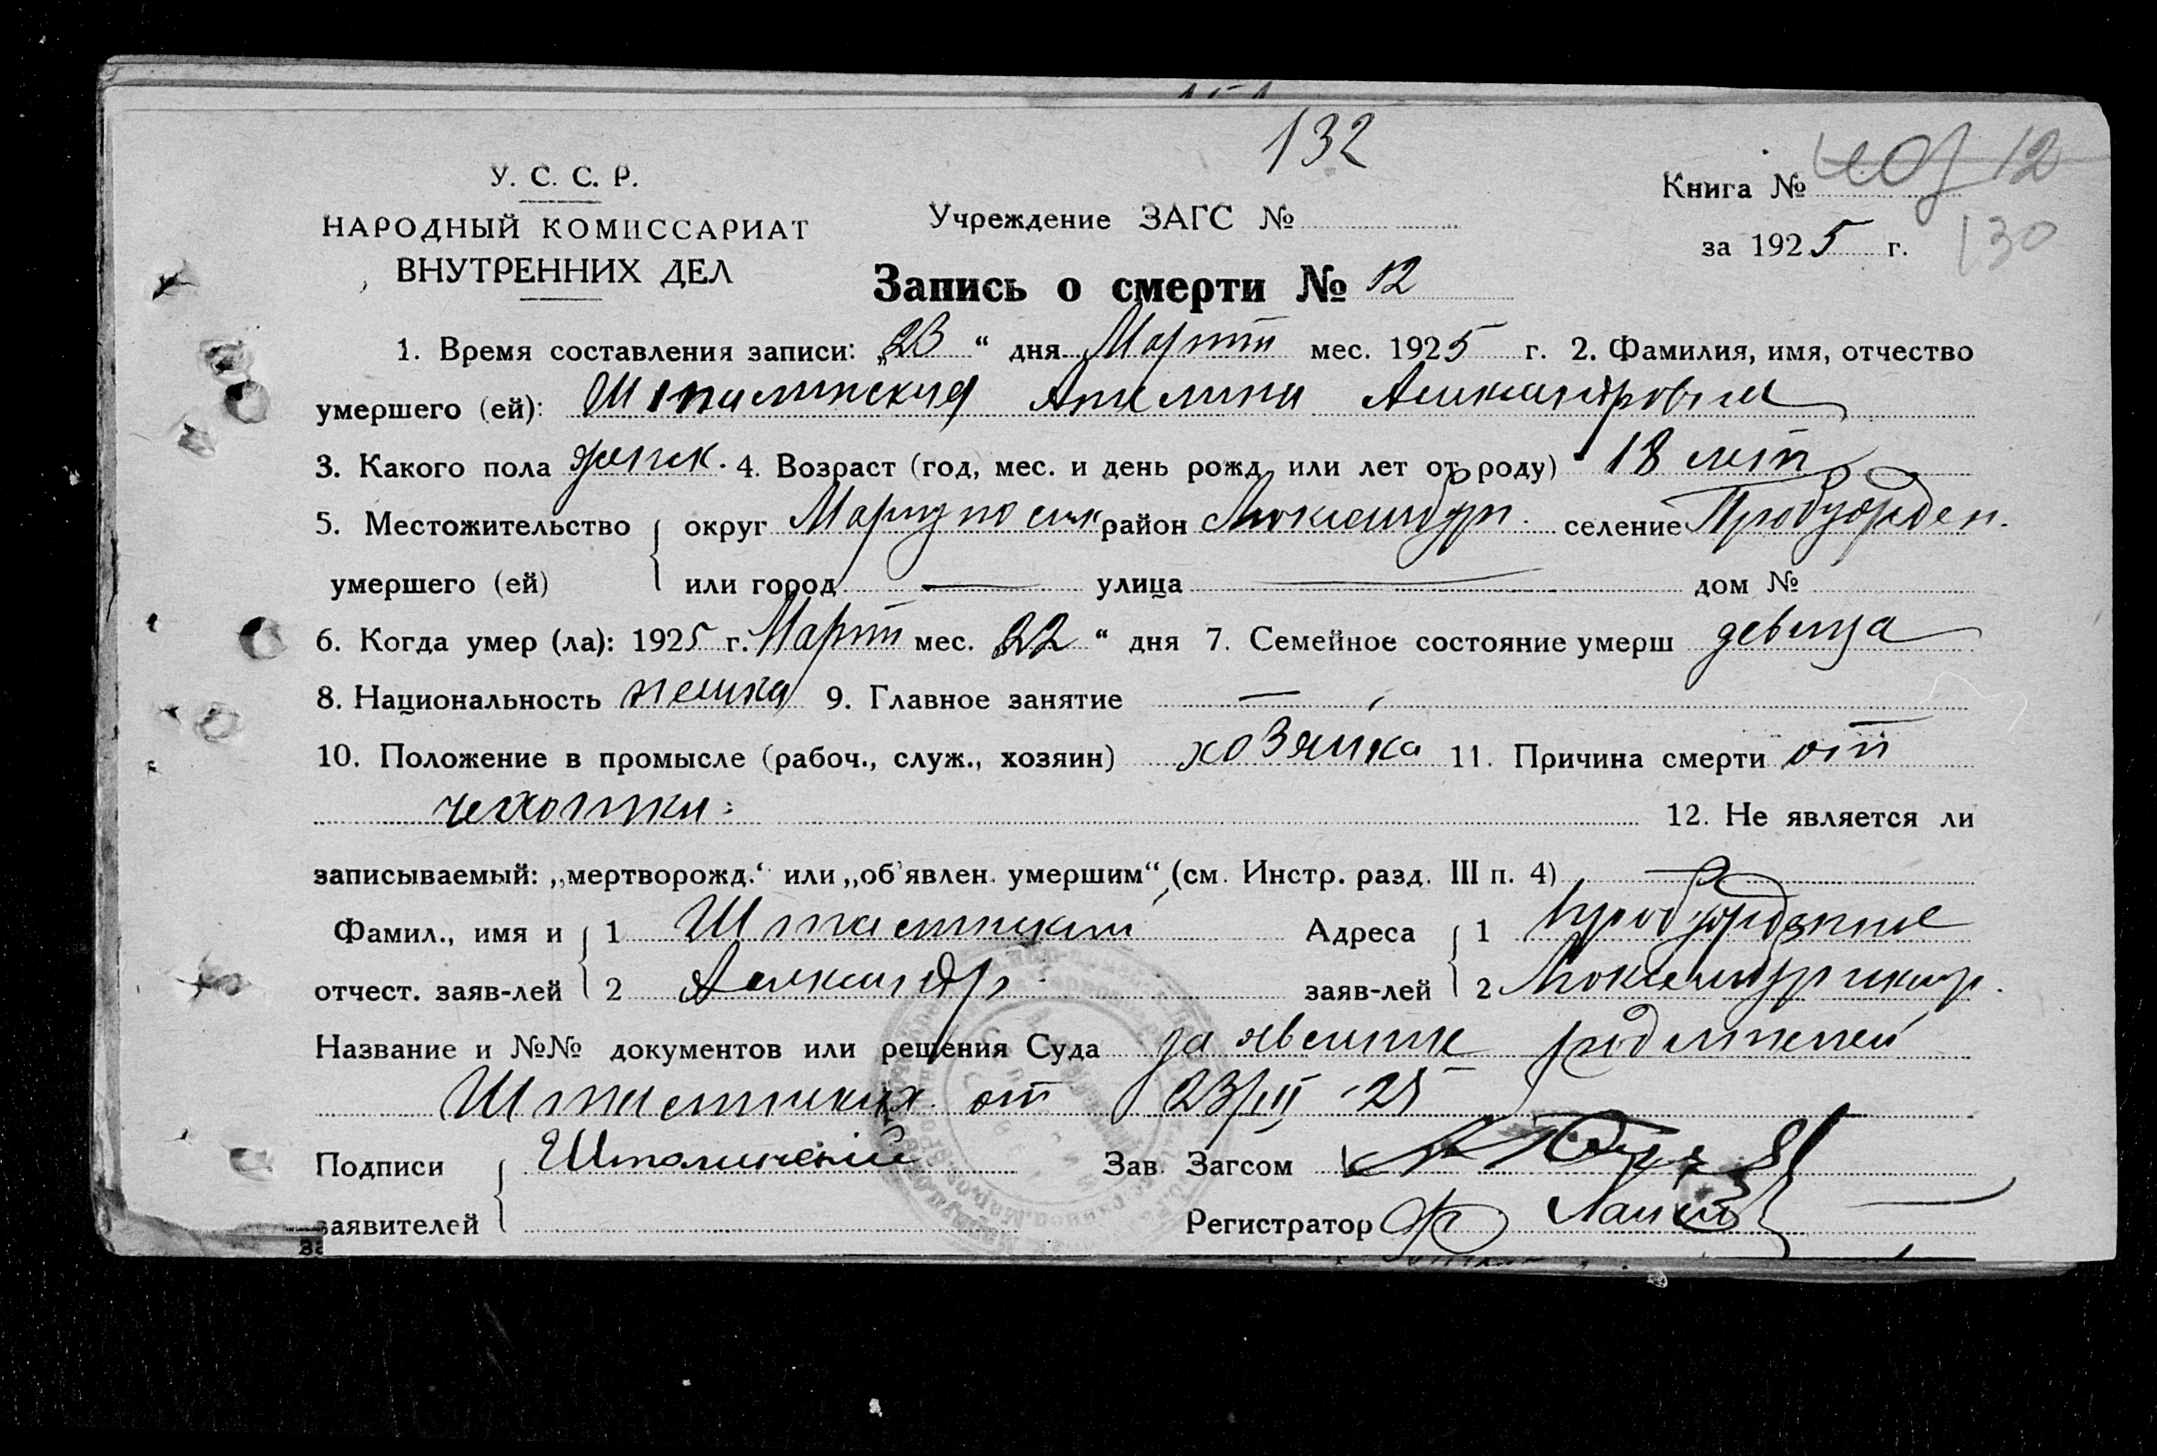 132
У. С. С. Р.
НАРОДНЫЙ КОМИССАРИАТ
ВНУТРЕННИХ ДЕЛ
Учреждение ЗАГС №
Книга № 12
за 1925 г. 130
Запись о смерти № 12
1. Время составления записи: „23“ дня Март мес. 1925 г. 2. Фамилия, имя, отчество
умершего (ей):
3. Какого пола женск. 4. Возраст (год, мес. и день рожд. или лет от роду) 18 лет
5. Местожительство округ Мариупольск район Люксембург. селение
умершего (ей) или город — улица — дом №
6. Когда умер (ла): 1925 г. Март мес. „22“ дня 7. Семейное состояние умерш девица
8. Национальность немка 9. Главное занятие —
10. Положение в промысле (рабоч., служ., хозяин) хозяйка 11. Причина смерти от
чехотки. 12. Не является ли
записываемый: „мертворожд.“ или „об'явлен. умершим“ (см. Инстр. разд. III п. 4) —
Фамил., имя и 1 Адреса 1
отчест. заяв-лей 2 Александр заяв-лей 2
Название и №№ документов или решения Суда заявление родителей
от 23/III -25
Подписи Зав. Загсом
заявителей Регистратор